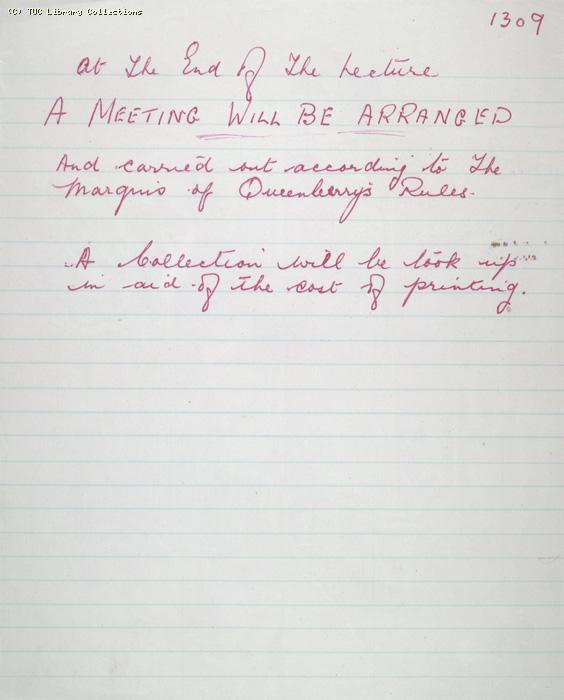 (C) TUC Library Collections
1309
at The End of The Lecture
A MEETING WILL BE ARRANGED
And carried out according to The
Marquis of Queenberry's Rules.
A Collection will be took up
in aid of the cost of printing.